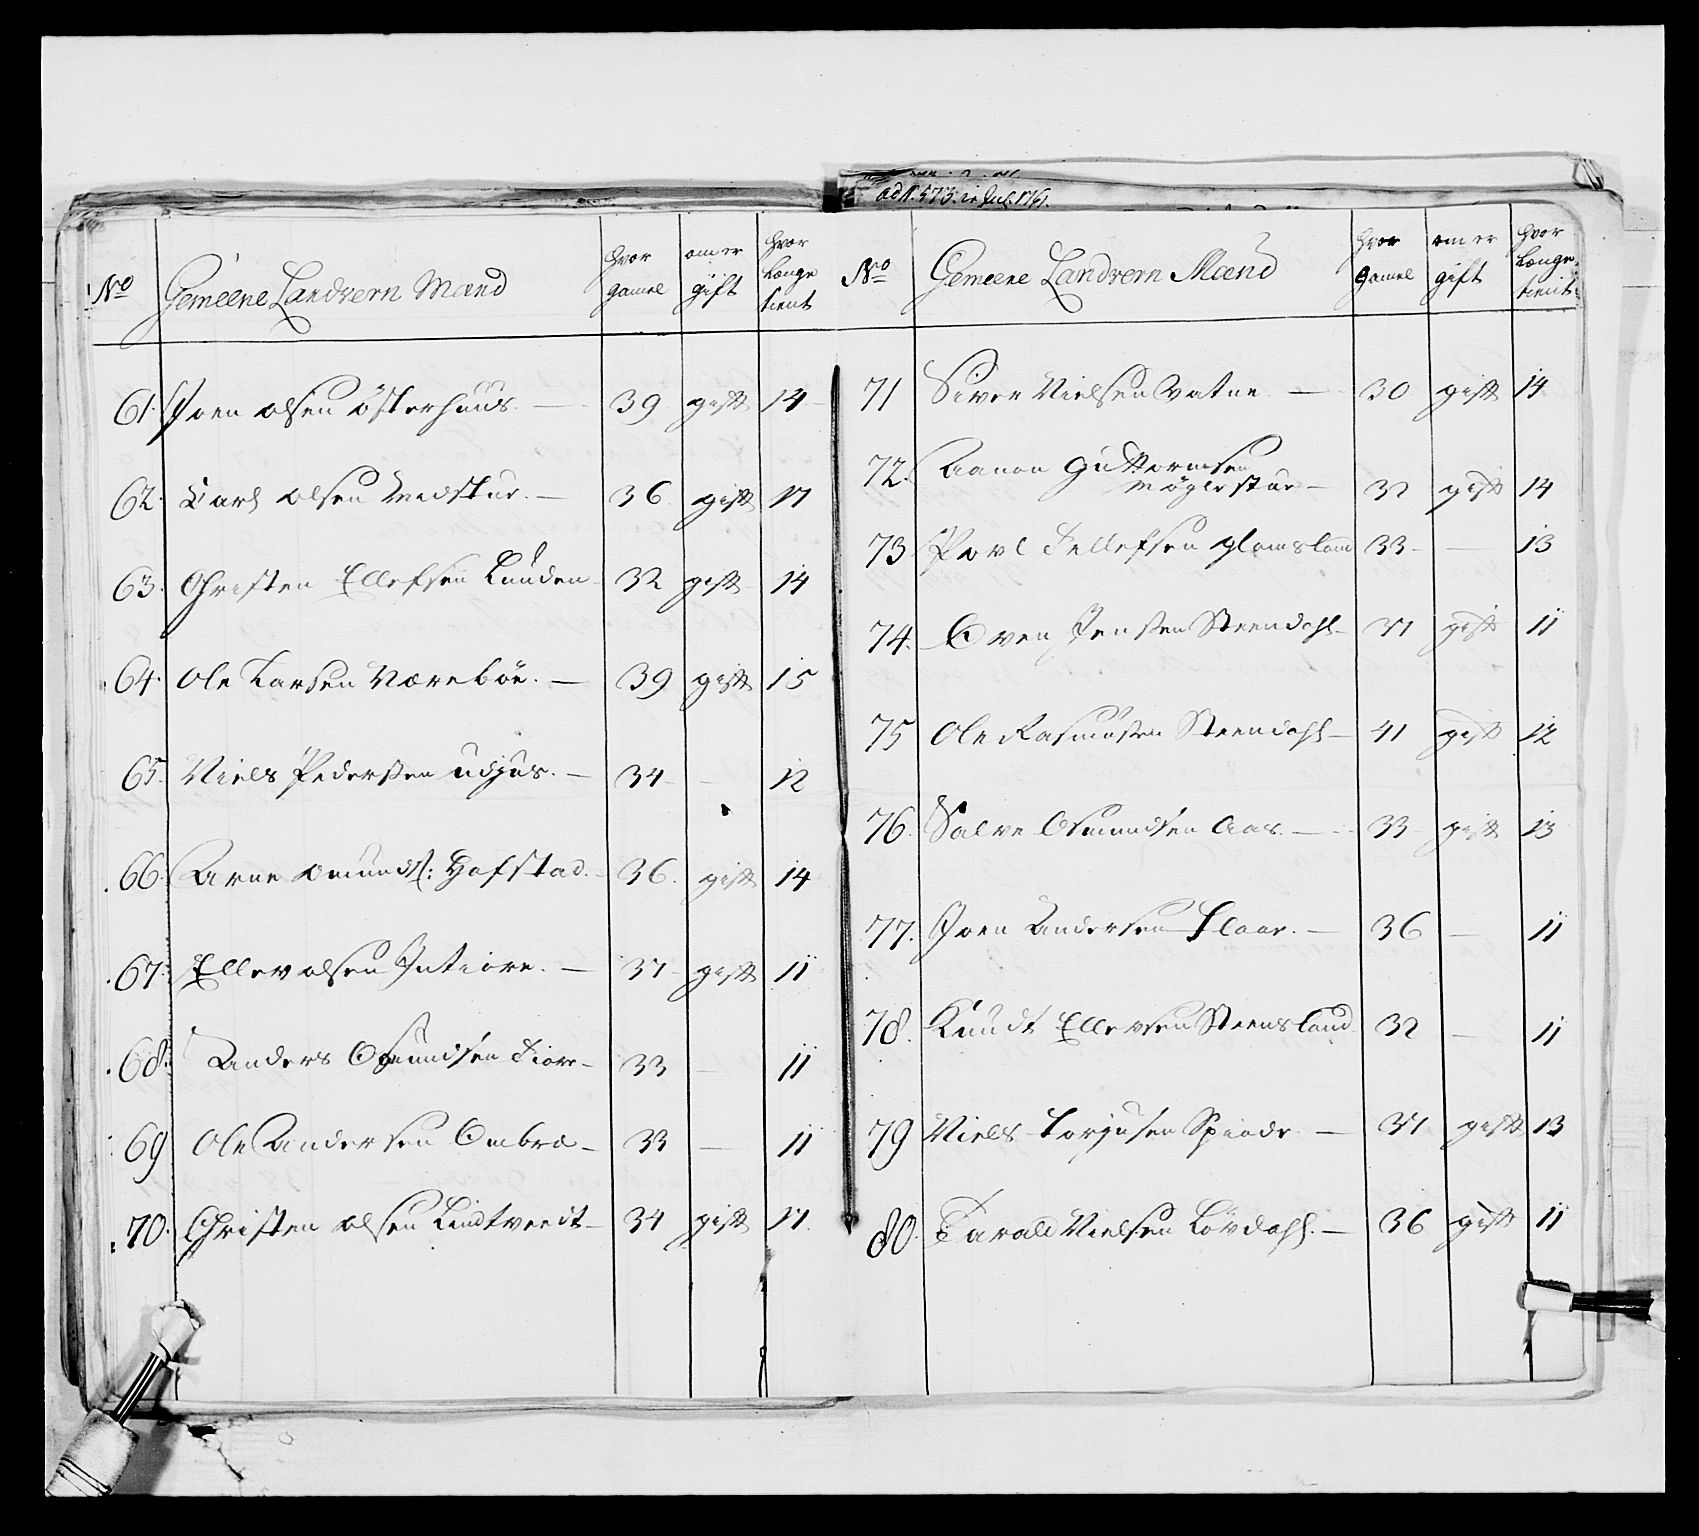 ad N. 573. in Jul. 1761.
No Gemeene Landvern Mænd hvor gamel om er gift hvor Længe tient
61. Joen Olsen Østerhuus. — 39 gift 14
62. Carl Olsen Medstue. — 36 gift 11
63. Christen Ellefsen Lunden 32 gift 14
64. Ole Larsen Værebøe. — 39 gift 15
65. Niels Pedersen Udjus. — 34 — 12
66. Arne Omunds: Hafstad. 36. gift 14
67. Ellev Olsen Intiore. — 37 gift 11
68. Anders Osmundsen Fiære — 33 — 11
69 Ole Andersen Ombre — 33 — 11
70. Christen Olsen Lindtvedt — 34 gift 11.
No Gemeene Landvern Mænd hvor gamel om er gift hvor Længe tient
71 Siver Nielsen Vatne. — 30 gift 14
72. Aanon Guttormsen
Møglestue — 32 gift 14
73 Povl Tellefsen Glamsland 33 — 13
74. Sven Jensen Steendahl — 31 gift 11
75 Ole Rasmusen Steendahl — 41 gift 12
76. Salve Osmundsen Aas. — 33 gift 13
77. Joen Andersen Flaae. — 36 — 11
78. Knudt Ellevsen Steensland 32 — 11
79 Niels Torjusen Spiode — 31 gift 13
80. Tarald Nielsen Løvdahl. — 36 gift 11